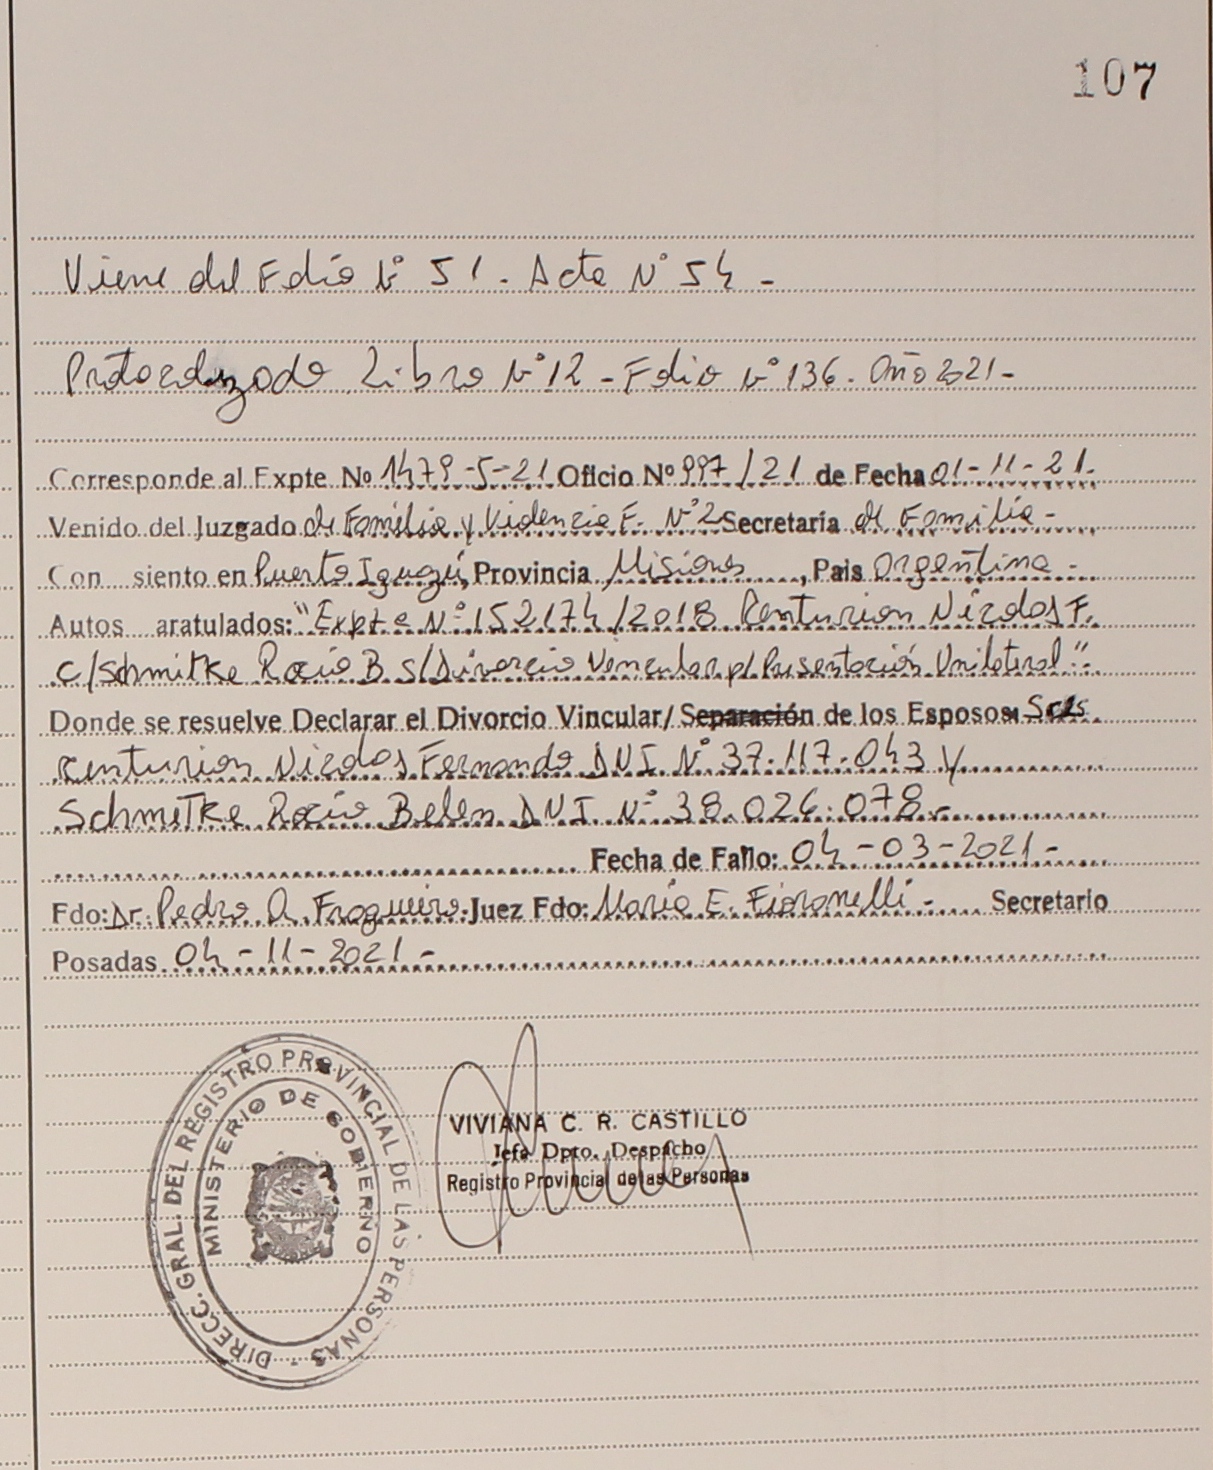 107
Viene del Folio N° 51. Acta N° 54 -
Protocolizado Libro N° 12 - Folio N° 136. Año 2021 -
Corresponde al Expte No 1479-5-21 Oficio No 997/21 de Fecha 01-11-21.
Venido del Juzgado de Familia y Violencia F. N° 2 Secretaria de Familia -
Con siento en Puerto Iguazú, Provincia Misiones, Pais Argentina -
Autos aratulados: "Expte N° 152174/2018 Centurion Nicolas F.
c/ Schmitke Rocio B S/Divorcio Vincular p/Presentación Unilateral"
Donde se resuelve Declarar el Divorcio Vincular/ Separación de los Esposos: Sres
Centurion Nicolas Fernando DNI N° 37.117.043 y
Schmitke Rocio Belen DNI N° 38.026.078 -
Fecha de Fallo: 04-03-2021 -
Fdo: Dr. Pedro A. Fragueiro. Juez Fdo: Maria E. Fioranelli - Secretario
Posadas 04-11-2021 -
DIRECC. GRAL. DEL REGISTRO PROVINCIAL DE LAS PERSONAS -
MINISTERIO DE GOBIERNO
VIVIANA C. R. CASTILLO
Jefa Dpto. Despacho
Registro Provincial de las Personas